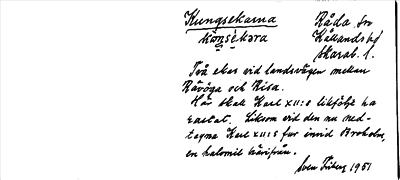 Kungsekarna
Råda sn
Kållands hd
Skarab. l.
Två ekar vid landsvägen mellan
Rävöga och Risa.
Här skall Karl XII:s likfölje ha
rastat. Liksom vid den nu ned-
tagna Karl XII:s fur invid
en halvmil härifrån.
Sven 1951